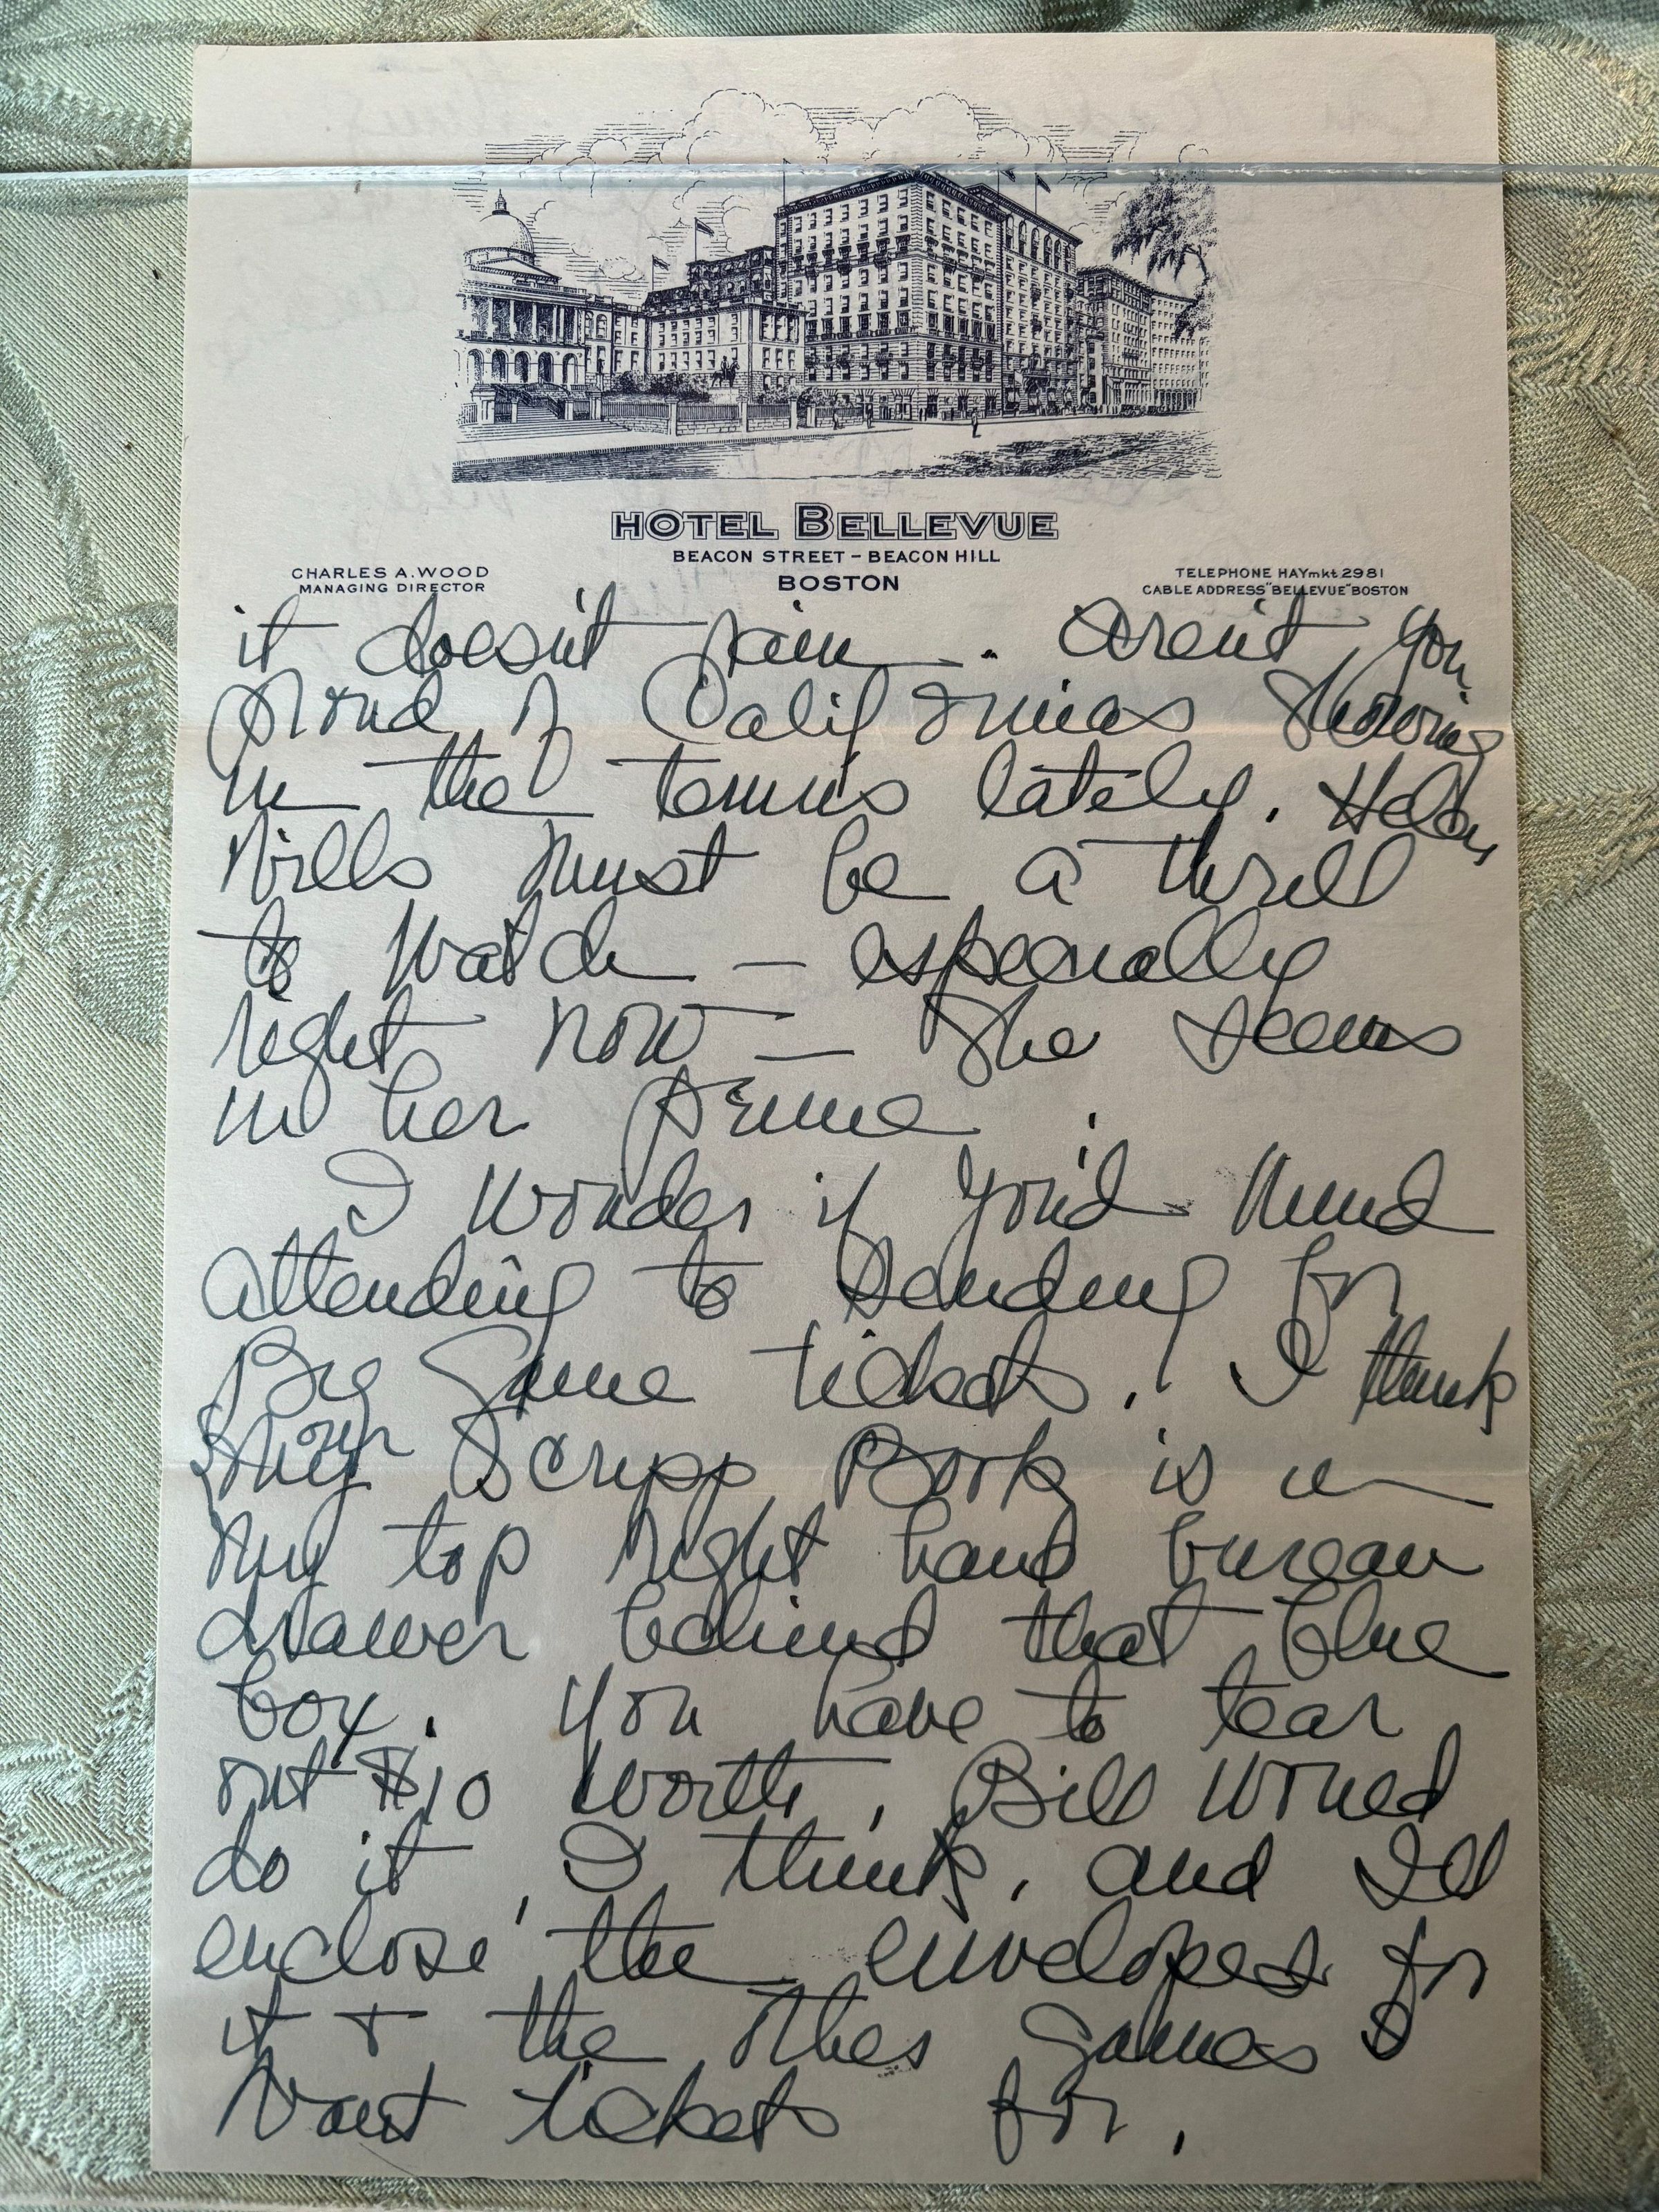 HOTEL BELLEVUE
BEACON STREET – BEACON HILL
BOSTON
CHARLES A. WOOD
MANAGING DIRECTOR
TELEPHONE HAYmkt. 2981
CABLE ADDRESS "BELLEVUE" BOSTON
it doesn't rain. Aren't you
proud of Californias showing
in the tennis lately. Helen
Wills must be a thrill
to watch — especially
right now — She seems
in her prime.
I wonder if you'd mind
attending to sending for
Big Game tickets. I think
my Scripp Book is in
my top right hand bureau
drawer behind that blue
box. You have to tear
out $10 worth. Bill would
do it, I think, and I'll
enclose the envelopes for
it + the other games I
want tickets for.